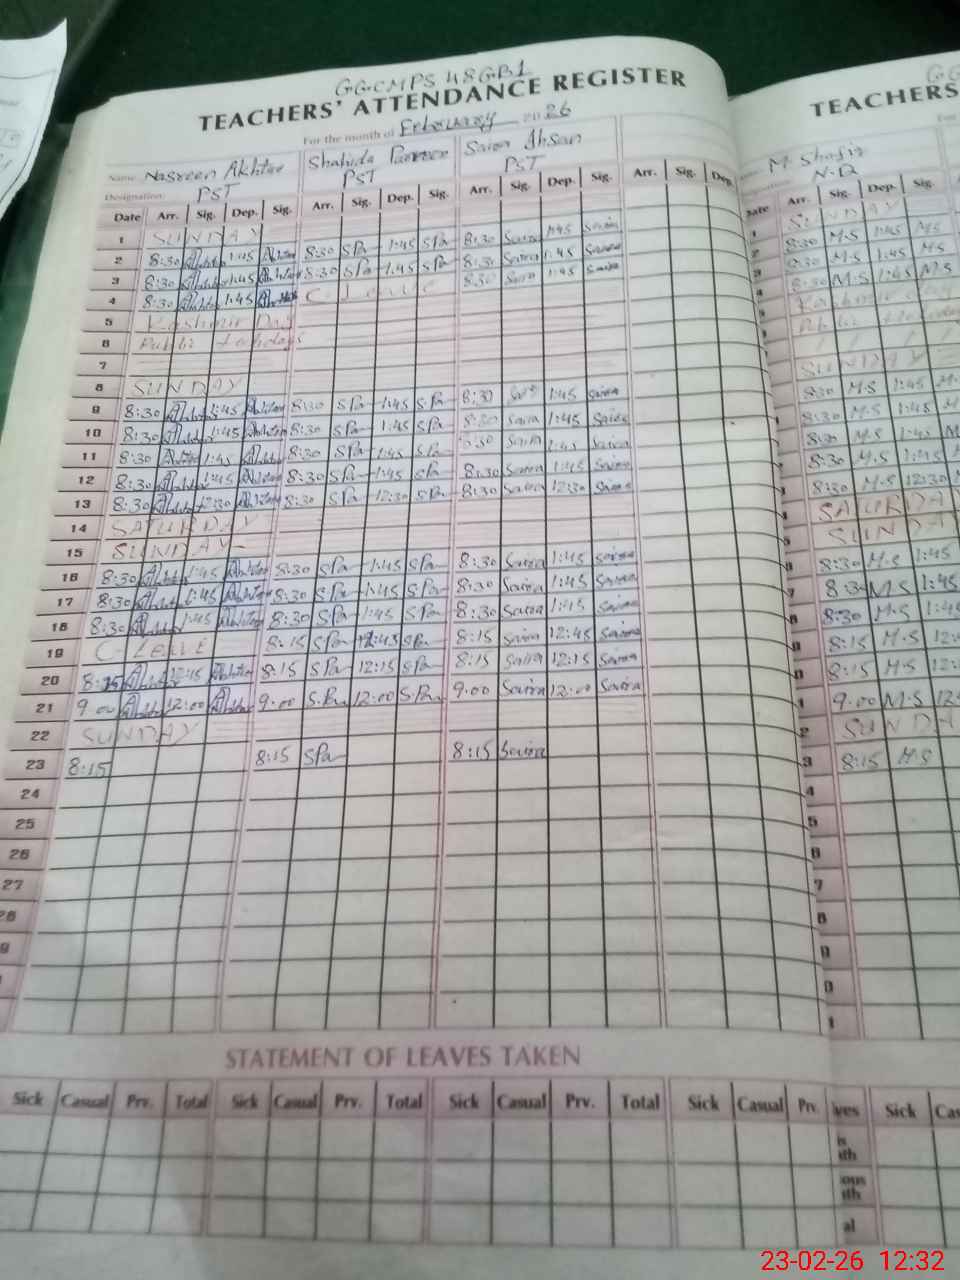 GGCMPS 48GB1
TEACHERS' ATTENDANCE REGISTER
For the month of February 2026
Name Nasreen Akhtar Shahida Parveen Saira Ahsan
Designation: PST PST PST
Date Arr. Sig. Dep. Sig. Arr. Sig. Dep. Sig. Arr. Sig. Dep. Sig. Arr. Sig. Dep.
1 SUNDAY
2 8:30 Akhtar 1:45 Akhtar 8:30 SPa 1:45 SPa 8:30 Saira 1:45 Saira
3 8:30 Akhtar 1:45 Akhtar 8:30 SPa 1:45 SPa 8:30 Saira 1:45 Saira
4 8:30 Akhtar 1:45 Akhtar C. Leave 8:30 Saira 1:45 Saira
5 Kashmir Day
6 Public holidays
7
8 SUNDAY
9 8:30 Akhtar 1:45 Akhtar 8:30 SPa 1:45 SPa 8:30 1:45 Saira
10 8:30 Akhtar 1:45 Akhtar 8:30 SPa 1:45 SPa 8:30 Saira 1:45 Saira
11 8:30 Akhtar 1:45 Akhtar 8:30 SPa 1:45 SPa 8:30 Saira 1:45 Saira
12 8:30 Akhtar 1:45 Akhtar 8:30 SPa 1:45 SPa 8:30 Saira 1:45 Saira
13 8:30 Akhtar 12:30 Akhtar 8:30 SPa 12:30 SPa 8:30 Saira 12:30 Saira
14 SATURDAY
15 SUNDAY
16 8:30 Akhtar 1:45 Akhtar 8:30 SPa 1:45 SPa 8:30 Saira 1:45 Saira
17 8:30 Akhtar 1:45 Akhtar 8:30 SPa 1:45 SPa 8:30 Saira 1:45 Saira
18 8:30 Akhtar 1:45 Akhtar 8:30 SPa 1:45 SPa 8:30 Saira 1:45 Saira
19 C. Leave 8:15 SPa 12:45 SPa 8:15 Saira 12:45 Saira
20 8:15 Akhtar 12:15 Akhtar 8:15 SPa 12:15 SPa 8:15 Saira 12:15 Saira
21 9.00 Akhtar 12:00 Akhtar 9.00 S.Pa 12:00 S.Pa 9.00 Saira 12:00 Saira
22 SUNDAY
23 8:15 8:15 SPa 8:15 Saira
24
25
26
27
28
STATEMENT OF LEAVES TAKEN
Sick Casual Prv. Total Sick Casual Prv. Total Sick Casual Prv. Total Sick Casual Prv.
GG
TEACHERS
M. Shafiq
N.Q
Date Arr. Sig. Dep. Sig.
SUNDAY
8:30 M.S 1:45 M.S
8:30 M.S 1:45 M.S
8:30 M.S 1:45 M.S
Kashmir day
Public Holiday
SUNDAY
8:30 M.S 1:45 M.
8:30 M.S 1:45 M
8:30 M.S 1:45 M
8:30 M.S 1:45 M
8:30 M.S 12:30 M
SATURDA
SUNDA
8:30 M.S 1:45
8:30 M.S 1:45
8:30 M.S 1:45
8:15 M.S 12:
8:15 M.S 12:
9.00 M.S 12
SUNDA
8:15 M.S
Sick Cas
23-02-26 12:32